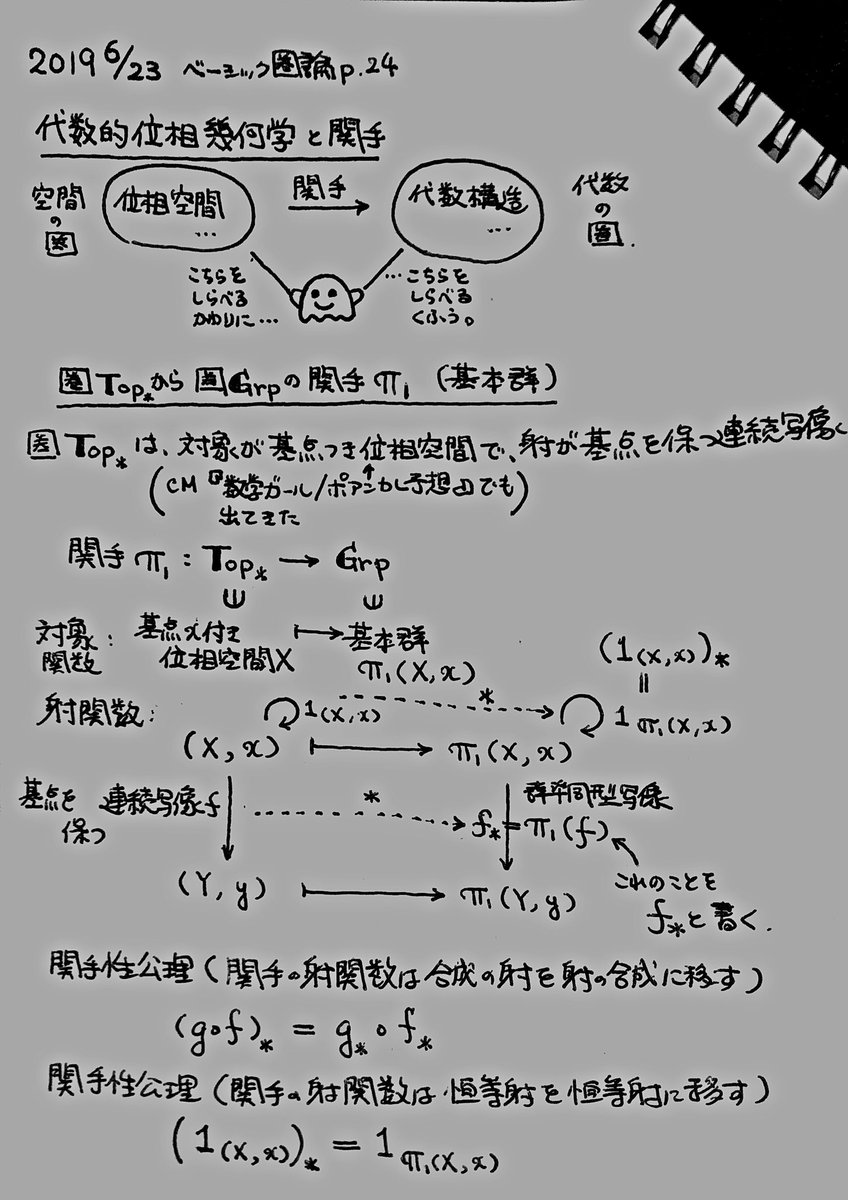 2019 6/23 ベーシック圏論p.24
代数的位相幾何学と関手
空間の圏
位相空間…
関手
代数構造…
代数の圏.
こちらを
しらべる
かわりに…
…こちらを
しらべる
くふう。
圏Top*から圏Grpの関手π₁(基本群)
圏Top*は、対象が基点つき位相空間で、射が基点を保つ連続写像
(CM『数学ガール/ポアンカレ予想』でも
出てきた)
関手π₁:Top*→Grp
∈ ∈
対象関数:
基点x付き
位相空間X
↦基本群
π₁(X,x)
(1(X,x))*
=
1π₁(X,x)
射関数:
1(X,x)
*
(X,x) ↦ π₁(X,x)
基点を保つ
連続写像f
*
群準同型写像
f*=π₁(f)
これのことを
f*と書く.
(Y,y) ↦ π₁(Y,y)
関手性公理(関手の射関数は合成の射を射の合成に移す)
(g∘f)* = g*∘f*
関手性公理(関手の射関数は恒等射を恒等射に移す)
(1(X,x))* = 1π₁(X,x)